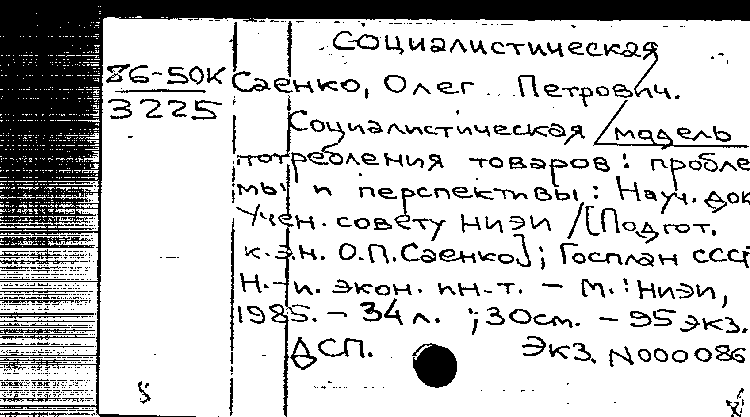 Социалистическая
86-50К Саенко, Олег Петрович.
3225
Социалистическая модель
потребления товаров: пробле
мы и перспективы: Науч. док
Учен. совету НИЭИ / [Подгот.
к.э.н. О.П.Саенко]; Госплан СССР
Н.-и. экон. ин-т. - М.: НИЭИ,
1985. - 34 л. ; 30см. - 95 экз.
ДСП. Экз. N000086